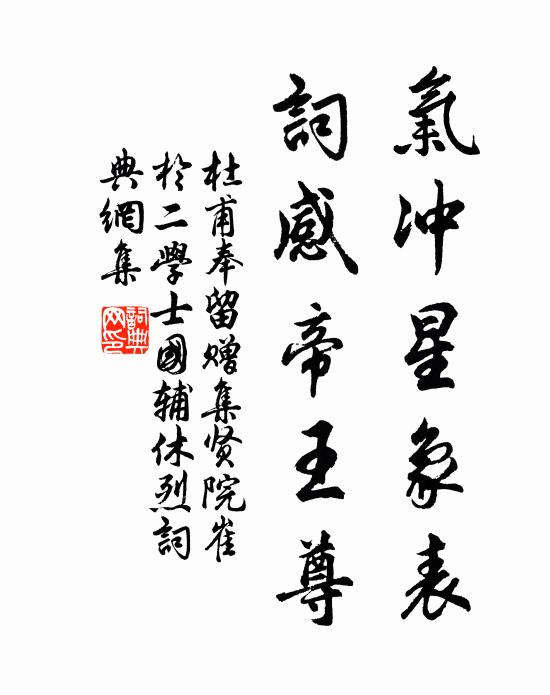 氣冲星象表
詞感帝王尊
杜甫奉留贈集贤院崔
於二學士國辅休烈詞
典網集
詞典网印